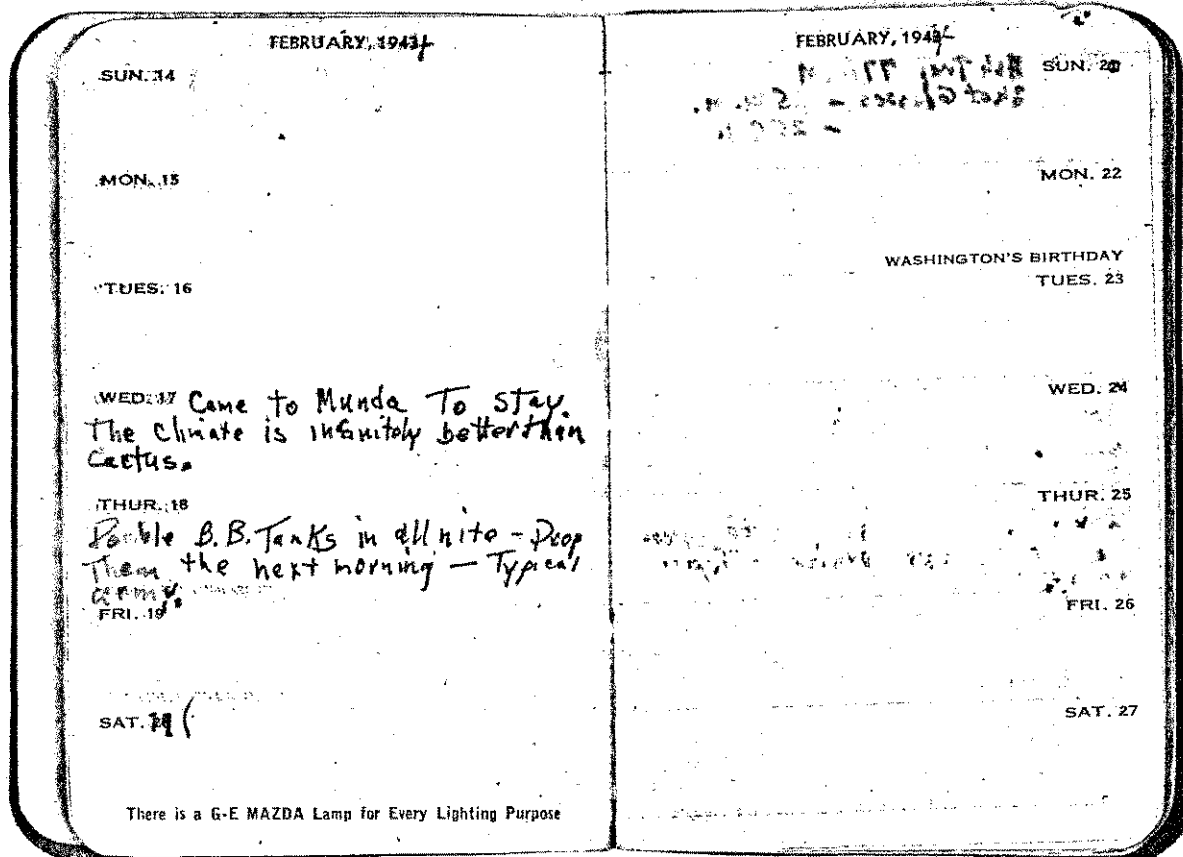 FEBRUARY, 1943
SUN. 14
MON. 15
TUES. 16
WED. 17 Came to Munda To stay.
The Climate is infinitely better than
Cactus.
THUR. 18
Double B.B. Tanks in all nite - Drop
Them the next morning — Typical
army.
FRI. 19
SAT.
There is a G-E MAZDA Lamp for Every Lighting Purpose
FEBRUARY, 194
SUN.
MON. 22
WASHINGTON'S BIRTHDAY
TUES. 23
WED. 24
THUR. 25
FRI. 26
SAT. 27